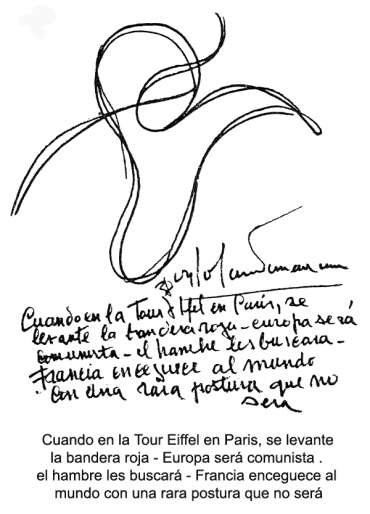 Cuando en la Tour Eiffel en París, se
levante la bandera roja - europa será
comunista - el hambre les buscara -
Francia enceguece al mundo
con una rara postura que no
sera
Cuando en la Tour Eiffel en Paris, se levante
la bandera roja - Europa será comunista .
el hambre les buscará - Francia enceguece al
mundo con una rara postura que no será